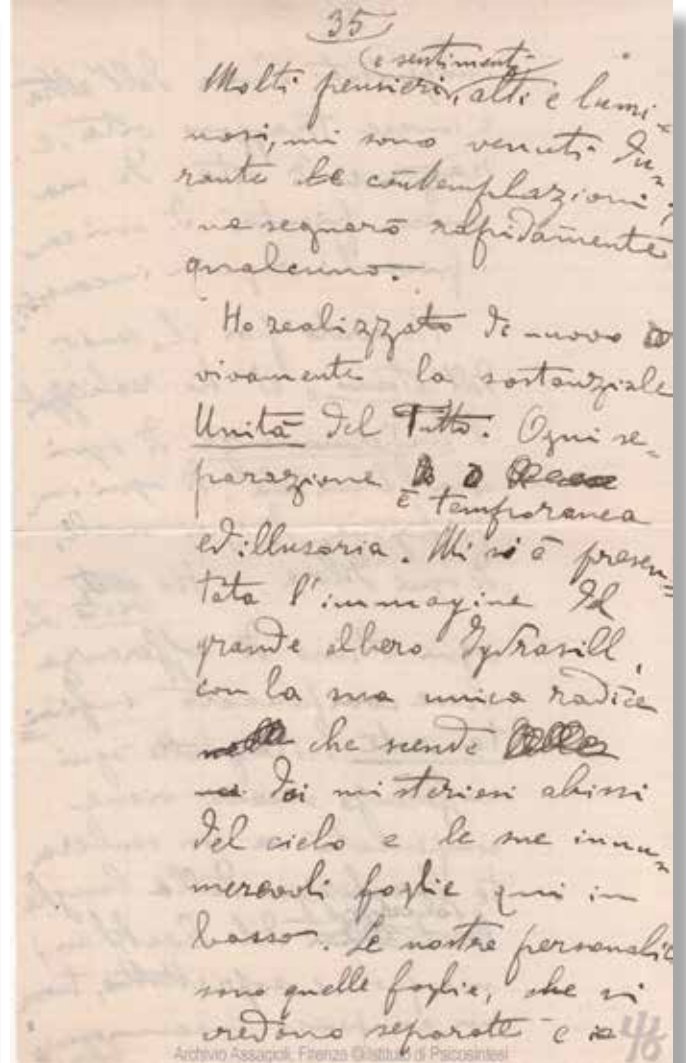 35
(e sentimenti)
Molti pensieri, alti e lumi=
nosi, mi sono venuti du=
rante le contemplazioni;
ne segnerò rapidamente
qualcuno.
Ho realizzato di nuovo
vivamente la sostanziale
Unità del Tutto. Ogni se=
parazione
è temporanea
ed illusoria. Mi si è presen=
tata l'immagine del
grande albero Ygdrasill,
con la sua unica radice
che scende
dai misteriosi abissi
del cielo e le sue innu=
merevoli foglie qui in
basso. Le nostre personalità
sono quelle foglie, che si
credono separate e
46
Archivio Assagioli, Firenze © Istituto di Psicosintesi